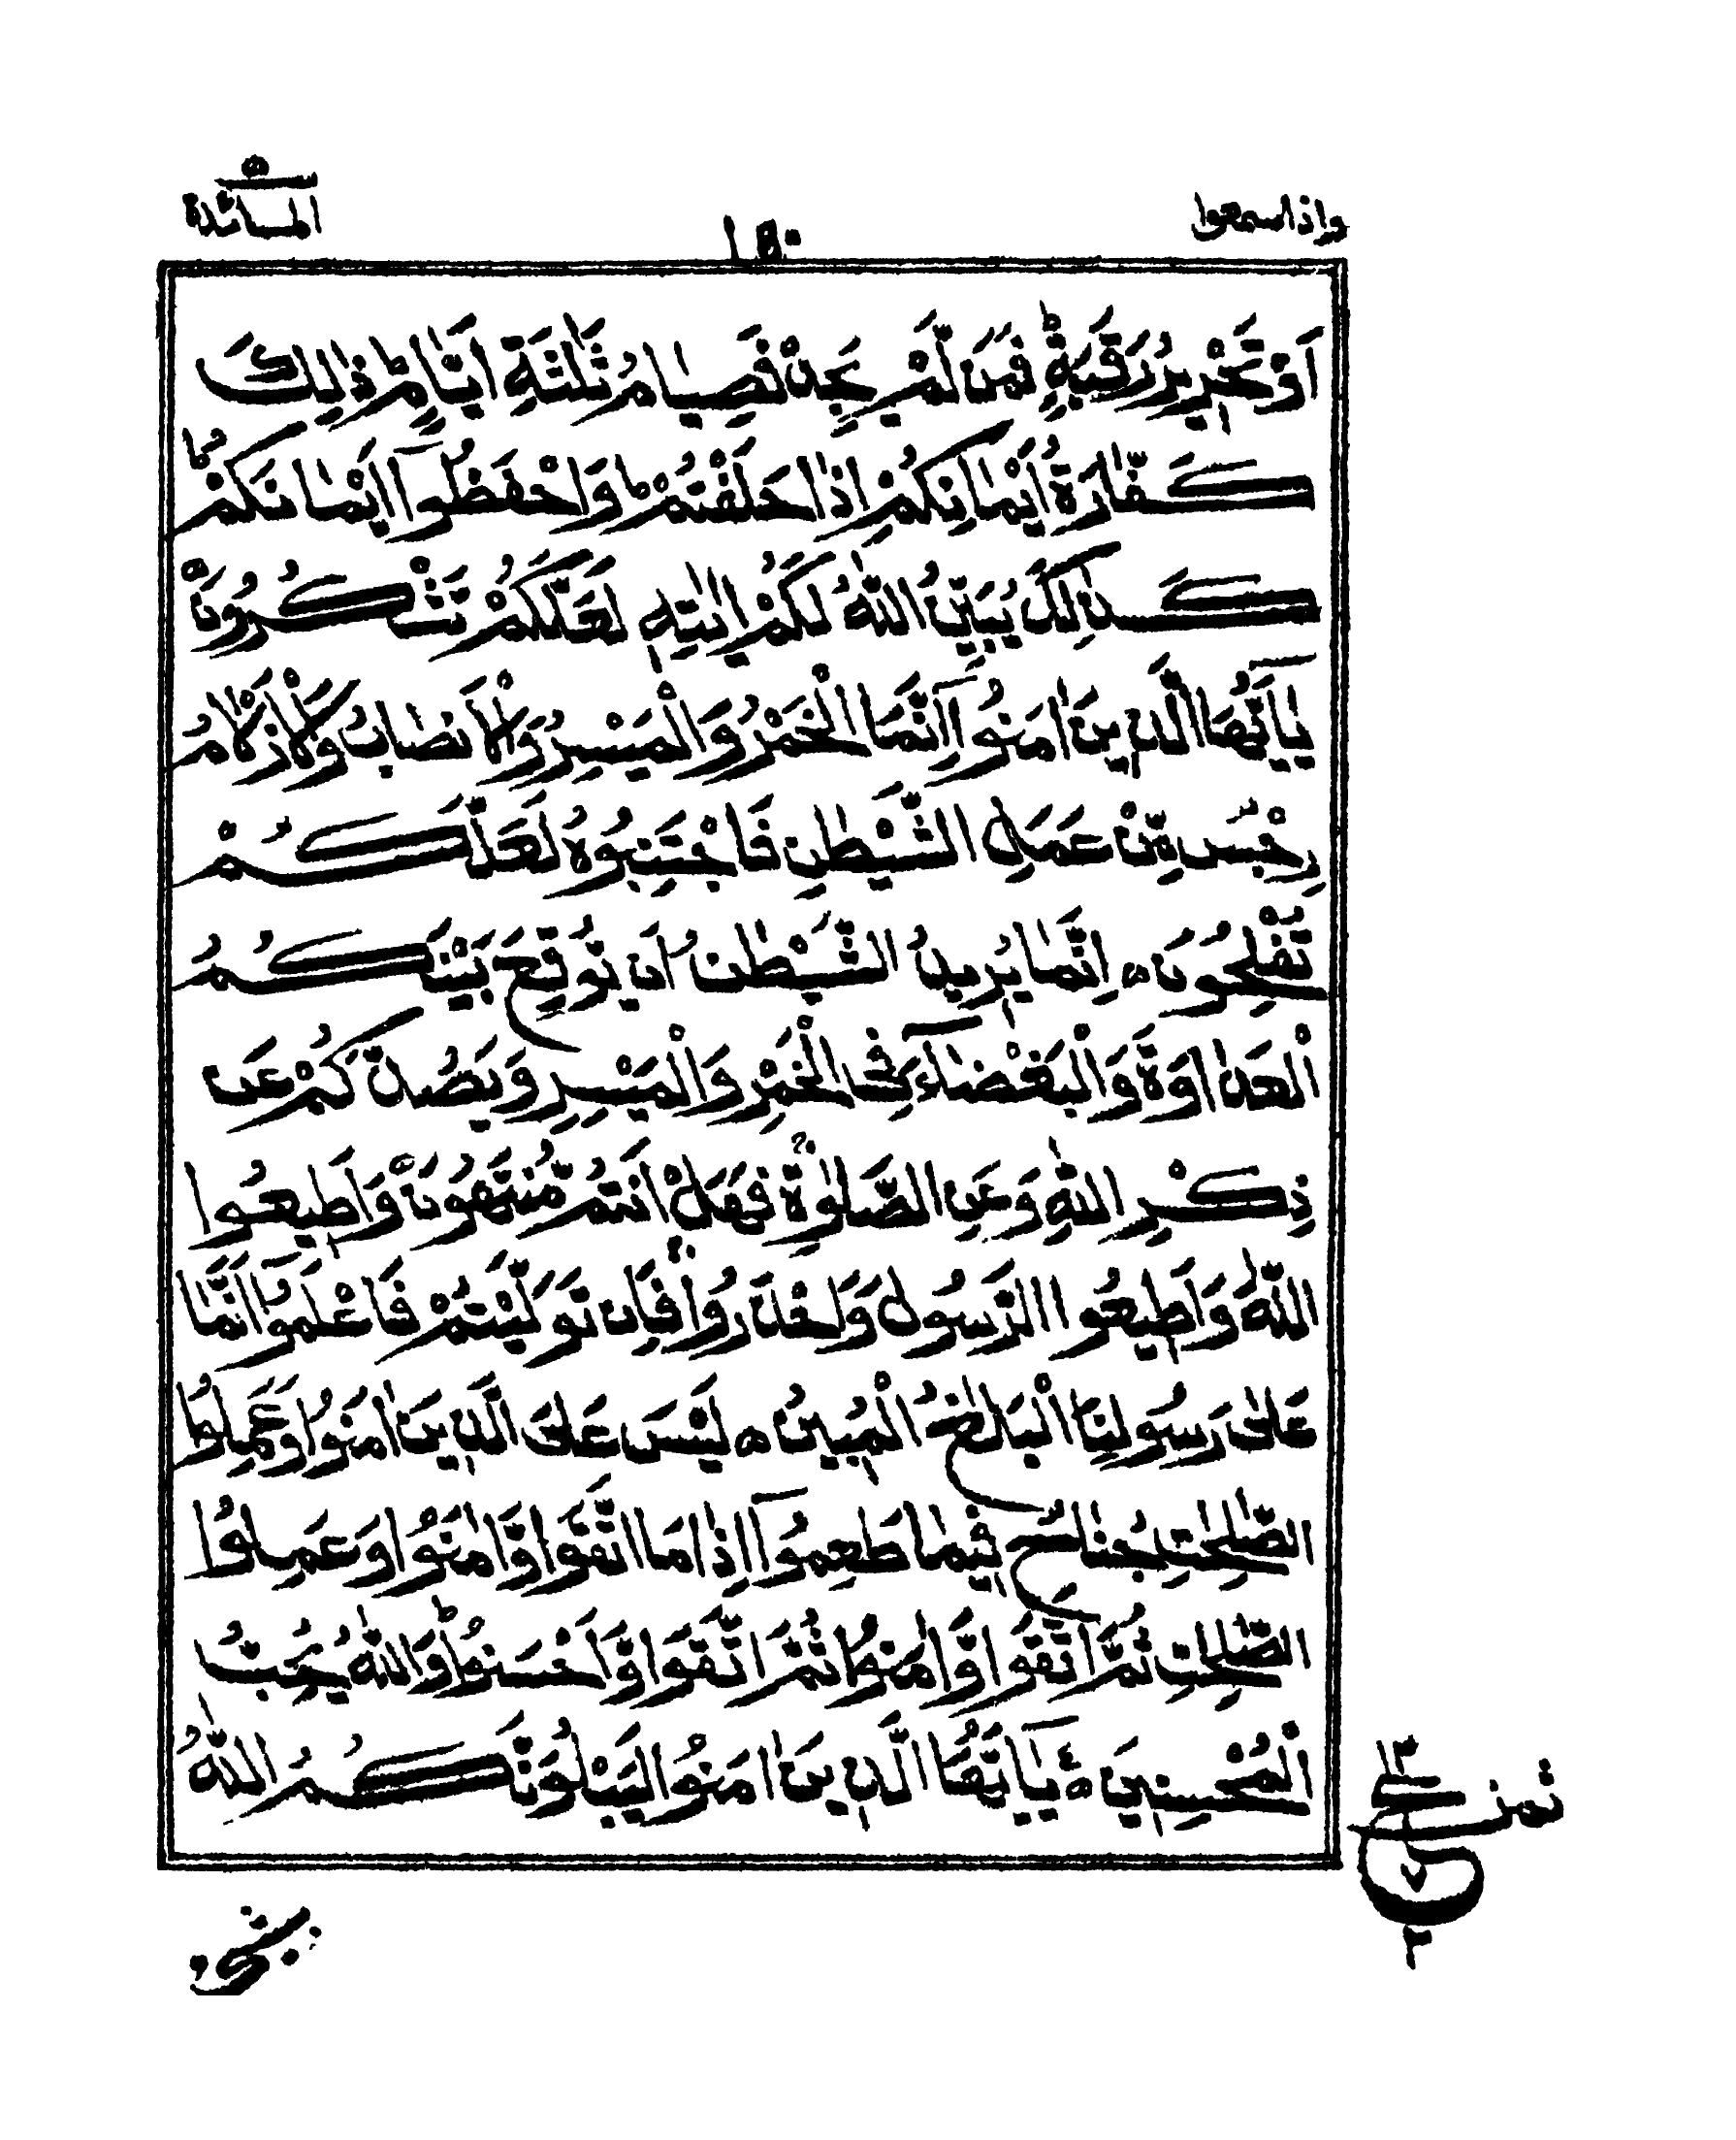 واذا سمعوا ١٥٠ المائدة ٥
اَوْ تَحْرِيْرُ رَقَبَةٍ ؕ فَمَنْ لَّمْ يَجِدْ فَصِيَامُ ثَلٰثَةِ اَيَّامٍ ؕ ذٰلِكَ
كَفَّارَةُ اَيْمَانِكُمْ اِذَا حَلَفْتُمْ ؕ وَاحْفَظُوْٓا اَيْمَانَكُمْ ؕ
كَذٰلِكَ يُبَيِّنُ اللّٰهُ لَكُمْ اٰيٰتِهٖ لَعَلَّكُمْ تَشْكُرُوْنَ ○
يٰٓاَيُّهَا الَّذِيْنَ اٰمَنُوْٓا اِنَّمَا الْخَمْرُ وَالْمَيْسِرُ وَالْاَنْصَابُ وَالْاَزْلَامُ
رِجْسٌ مِّنْ عَمَلِ الشَّيْطٰنِ فَاجْتَنِبُوْهُ لَعَلَّكُمْ
تُفْلِحُوْنَ ○ اِنَّمَا يُرِيْدُ الشَّيْطٰنُ اَنْ يُّوْقِعَ بَيْنَكُمُ
الْعَدَاوَةَ وَالْبَغْضَآءَ فِى الْخَمْرِ وَالْمَيْسِرِ وَيَصُدَّكُمْ عَنْ
ذِكْرِ اللّٰهِ وَعَنِ الصَّلٰوةِ ۚ فَهَلْ اَنْتُمْ مُّنْتَهُوْنَ ○ وَاَطِيْعُوا
اللّٰهَ وَاَطِيْعُوا الرَّسُوْلَ وَاحْذَرُوْا ۚ فَاِنْ تَوَلَّيْتُمْ فَاعْلَمُوْٓا اَنَّمَا
عَلٰى رَسُوْلِنَا الْبَلٰغُ الْمُبِيْنُ ○ لَيْسَ عَلَى الَّذِيْنَ اٰمَنُوْا وَعَمِلُوا
الصّٰلِحٰتِ جُنَاحٌ فِيْمَا طَعِمُوْٓا اِذَا مَا اتَّقَوْا وَّاٰمَنُوْا وَعَمِلُوا
الصّٰلِحٰتِ ثُمَّ اتَّقَوْا وَّاٰمَنُوْا ثُمَّ اتَّقَوْا وَّاَحْسَنُوْا ؕ وَاللّٰهُ يُحِبُّ
الْمُحْسِنِيْنَ ○ يٰٓاَيُّهَا الَّذِيْنَ اٰمَنُوْا لَيَبْلُوَنَّكُمُ اللّٰهُ
ثمن
ع
٧
٢
بشئ